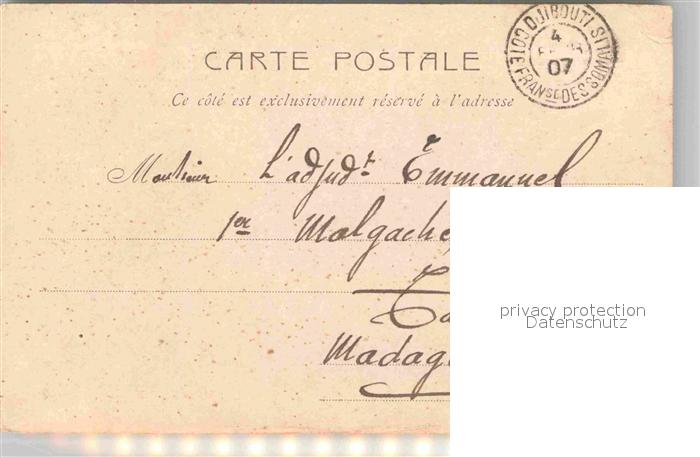 DJIBOUTI
COTE FRANSE DES SOMALIS
4
07
CARTE POSTALE
Ce côté est exclusivement réservé à l'adresse
Monsieur L'adjudt Emmanuel
1er Malgache
Madag
privacy protection
Datenschutz